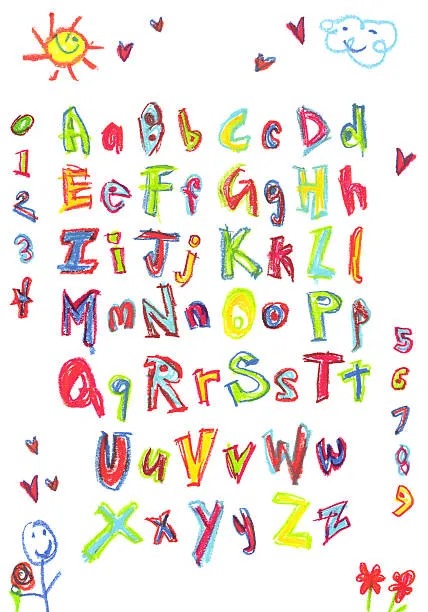 0
1
2
3
4
A a B b C c D d
E e F f G g H h
I i J j K k L l
M m N n O o P p
Q q R r S s T t
U u V v W w
X x Y y Z z
5
6
7
8
9